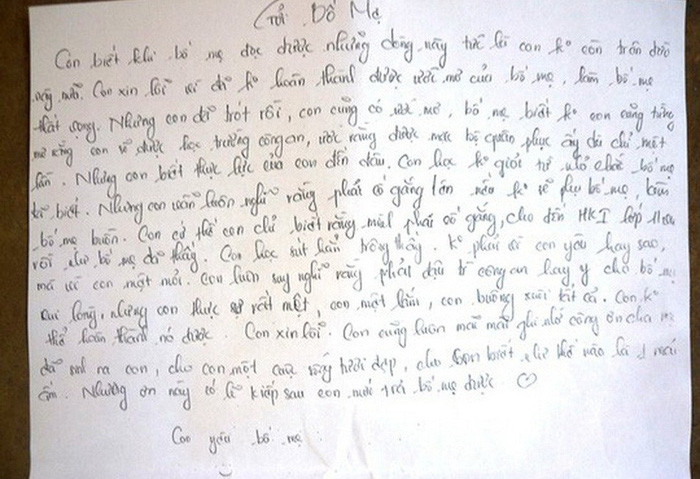 Gửi Bố Mẹ
Con biết khi bố mẹ đọc được những dòng này tức là con ko còn trên đời
này nữa. Con xin lỗi vì đã ko hoàn thành được ước mơ của bố mẹ, làm bố mẹ
thất vọng. Nhưng con đã trót rồi, con cũng có ước mơ, bố mẹ biết ko con cũng từng
mơ rằng con sẽ được học trường công an, ước rằng được mặc bộ quân phục ấy dù chỉ một
lần. Nhưng con biết thực lực của con đến đâu. Con học ko giỏi từ nhỏ chắc bố mẹ
biết. Nhưng con luôn nghĩ rằng phải cố gắng lớn ko phụ bố mẹ, làm
bố mẹ buồn. Con cứ thế con chỉ biết rằng mình phải cố gắng, cho đến HKI lớp 11
rồi như bố mẹ đã thấy. Con học sút hẳn trông thấy. Ko phải vì con yêu hay sao,
mà vì con mệt mỏi. Con luôn suy nghĩ rằng phải đậu công an hay y cho bố mẹ
vui lòng, nhưng con thực sự rất mệt, con mệt lắm, con buông xuôi tất cả. Con ko
thể hoàn thành nó được... Con xin lỗi. Con cũng luôn mãi mãi ghi nhớ công ơn cha mẹ
đã sinh ra con, cho con một cuộc sống tươi đẹp, cho con biết như thế nào là 1 mái
ấm. Nhưng ơn này có lẽ kiếp sau con mới trả bố mẹ được ♡
Con yêu bố mẹ